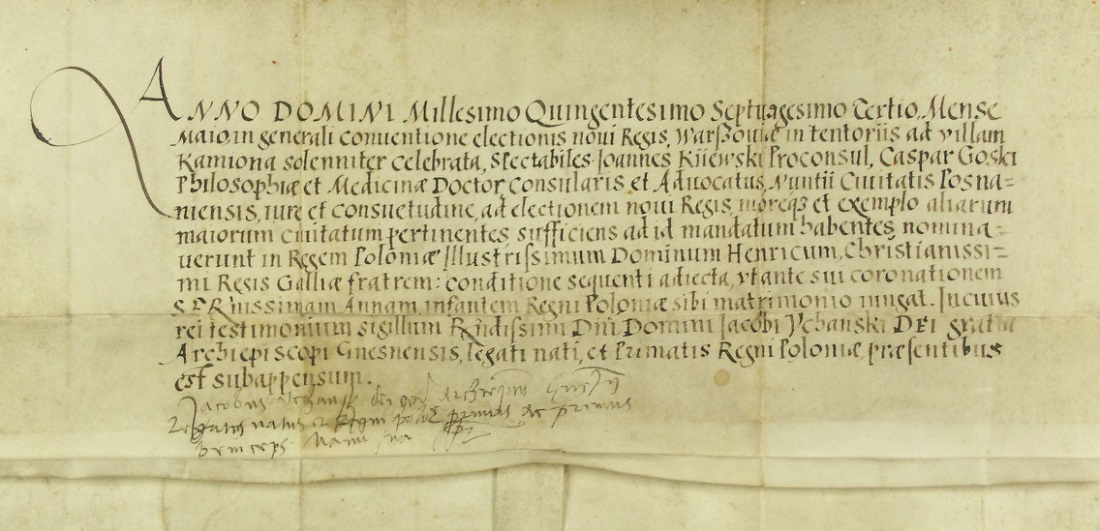 ANNO DOMINI Millesimo Quingentesimo Septuagesimo Tertio, Mense
Maio, in generali conuentione electionis noui Regis, Warßouiæ in tentoriis ad villam
Kamiona solenniter celebrata, Spectabiles Joannes Kijewski Proconsul, Caspar Goski
Philosophiæ et Medicinæ Doctor, Consularis et Aduocatus, Nuntii Ciuitatis Posna=
niensis, iure et consuetudine, ad electionem noui Regis, moreqꝫ et exemplo aliarum
maiorum ciuitatum pertinentes, sufficiens ad id mandatum habentes, nomina=
uerunt in Regem Poloniæ Illustrissimum Dominum Henricum, Christianissi=
mi Regis Galliæ fratrem: conditione sequenti adiecta, vt ante sui coronationem
SERnissimam Annam, infantem Regni Poloniæ sibi matrimonio iungat. In cuius
rei testimonium sigillum Rndissimi Dni Domini Jacobi Vchanski DEI gratia
Archiepiscopi Gnesnensis, legati nati, et Primatis Regni Poloniæ, præsentibus
est subappensum.
Jacobus Vchansky dei gra Archiepus
Legatus natus et Regni primas ac primus
princeps manu